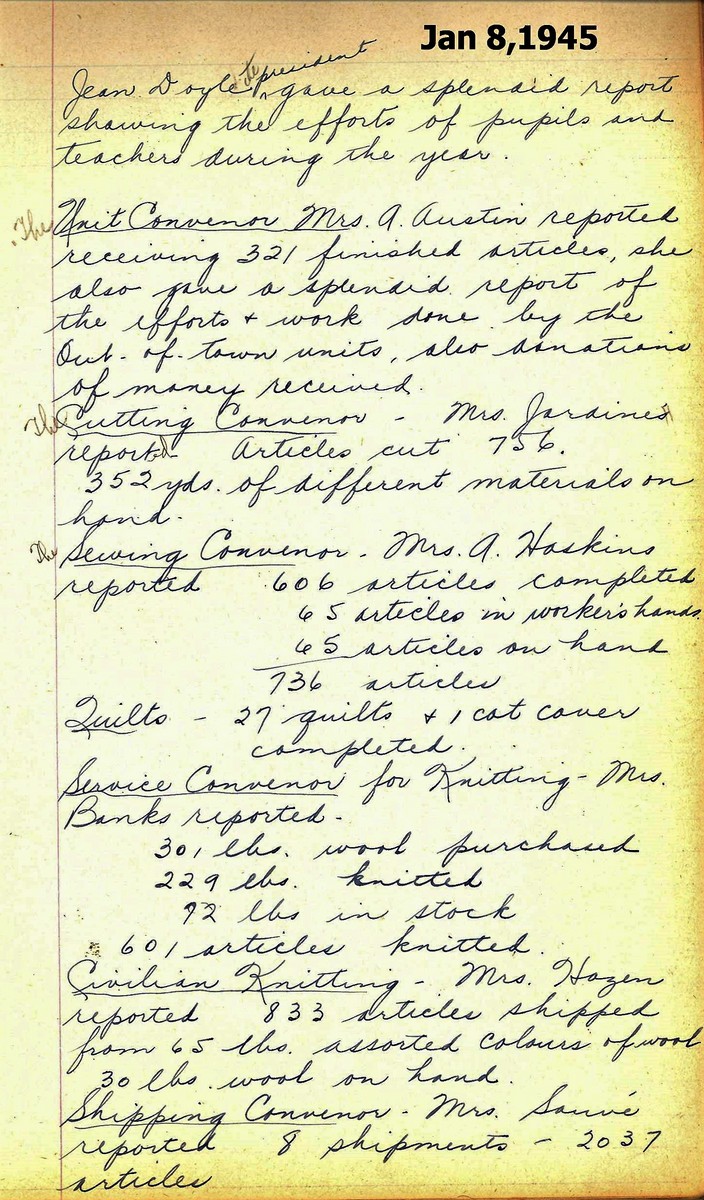 Jan 8,1945
the president
Jean Doyle ^ gave a splendid report
showing the efforts of pupils and
teachers during the year.
The Unit Convenor Mrs. A. Austin reported
receiving 321 finished articles, she
also gave a splendid report of
the efforts + work done by the
Out-of-town units, also donations
of money received.
The Cutting Convenor - Mrs. Jardine
reported Articles cut 756.
352 yds. of different materials on
hand.
The Sewing Convenor - Mrs. A. Haskins
reported 606 articles completed
65 articles in worker's hands.
65 articles on hand
736 articles
Quilts - 27 quilts + 1 cot cover
completed.
Service Convenor for Knitting - Mrs.
Banks reported -
301 lbs. wool purchased
229 lbs. knitted
72 lbs in stock
601 articles knitted.
Civilian Knitting - Mrs. Hazen
reported 833 articles shipped
from 65 lbs. assorted colours of wool
30 lbs. wool on hand.
Shipping Convenor - Mrs. Sauvé
reported 8 shipments - 2037
articles